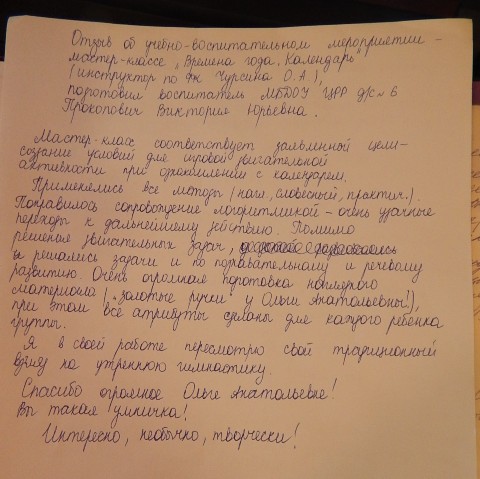 Отзыв об учебно-воспитательном мероприятии –
мастер-классе „Времена года. Календарь"
(инструктор по фк Чурсина О.А.),
подготовил воспитатель МБДОУ ЦРР д/с №6
Прокопович Виктория Юрьевна.
Мастер-класс соответствует заявленной цели –
создание условий для игровой двигательной
активности при ознакомлении с календарем.
Применялись все методы (нагл., словесный, практич.).
Понравилось сопровождение логоритмикой – очень удачные
переходы к дальнейшему действию. Помимо
решения двигательных задач,
решались задачи и по познавательному и речевому
развитию. Очень огромная подготовка наглядного
материала („золотые ручки" у Ольги Анатольевны!),
при этом все атрибуты сделаны для каждого ребенка
группы.
Я в своей работе пересмотрю свой традиционный
взгляд на утреннюю гимнастику.
Спасибо огромное Ольге Анатольевне!
Вы такая умничка!
Интересно, необычно, творчески!